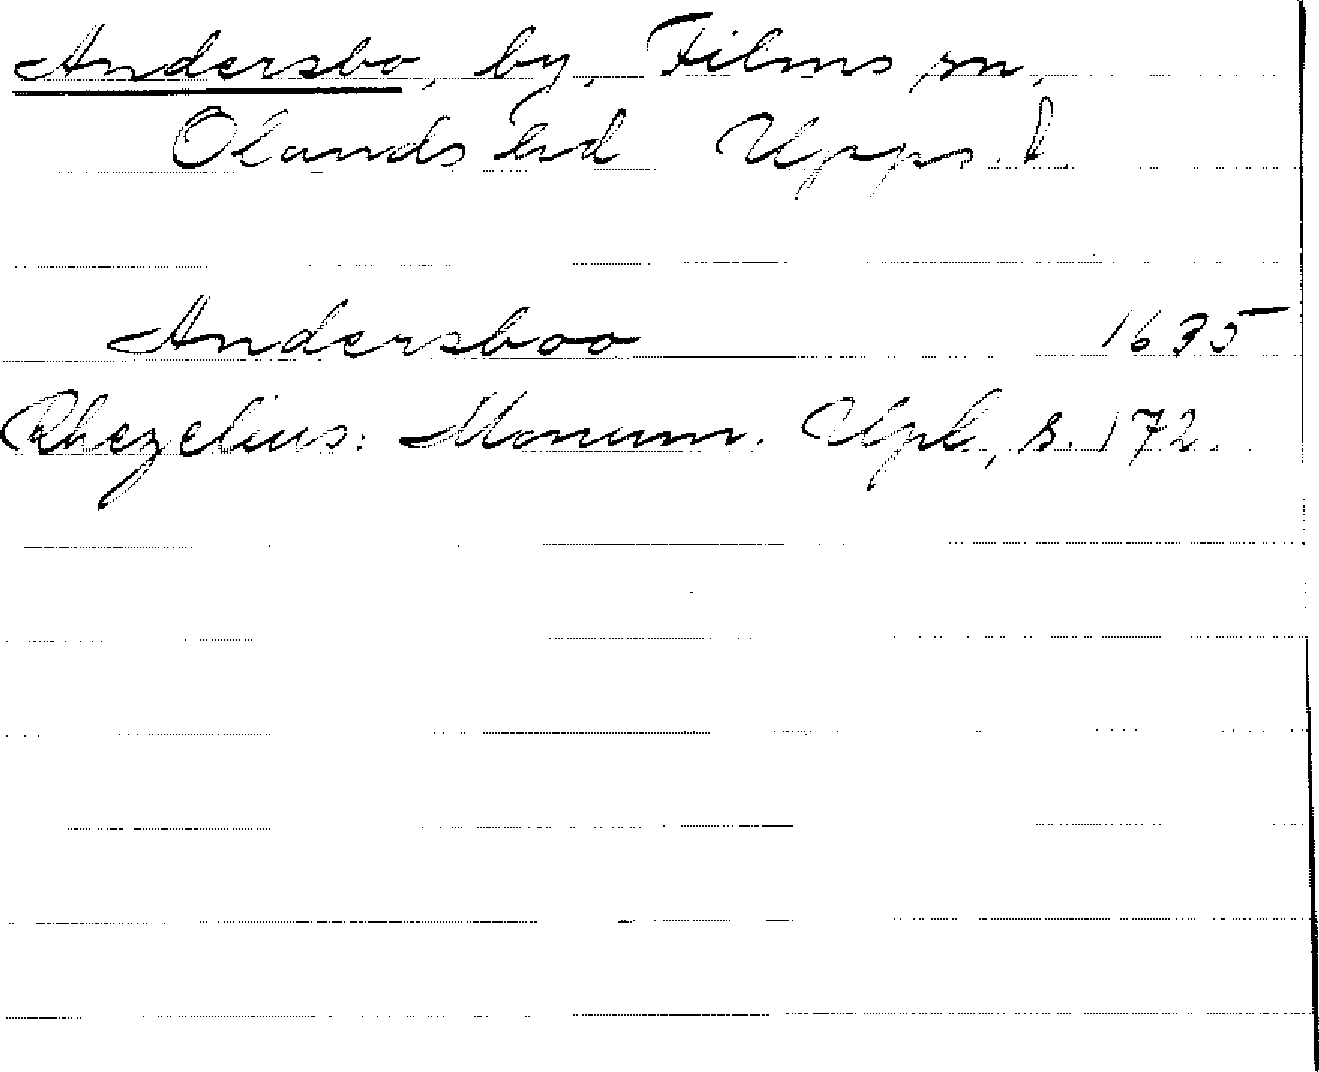 Andersbo, by, Films sn,
Olands hd Upps. l.
Andersboo 1635
Rhezelius: Monum. Upl., s. 172.